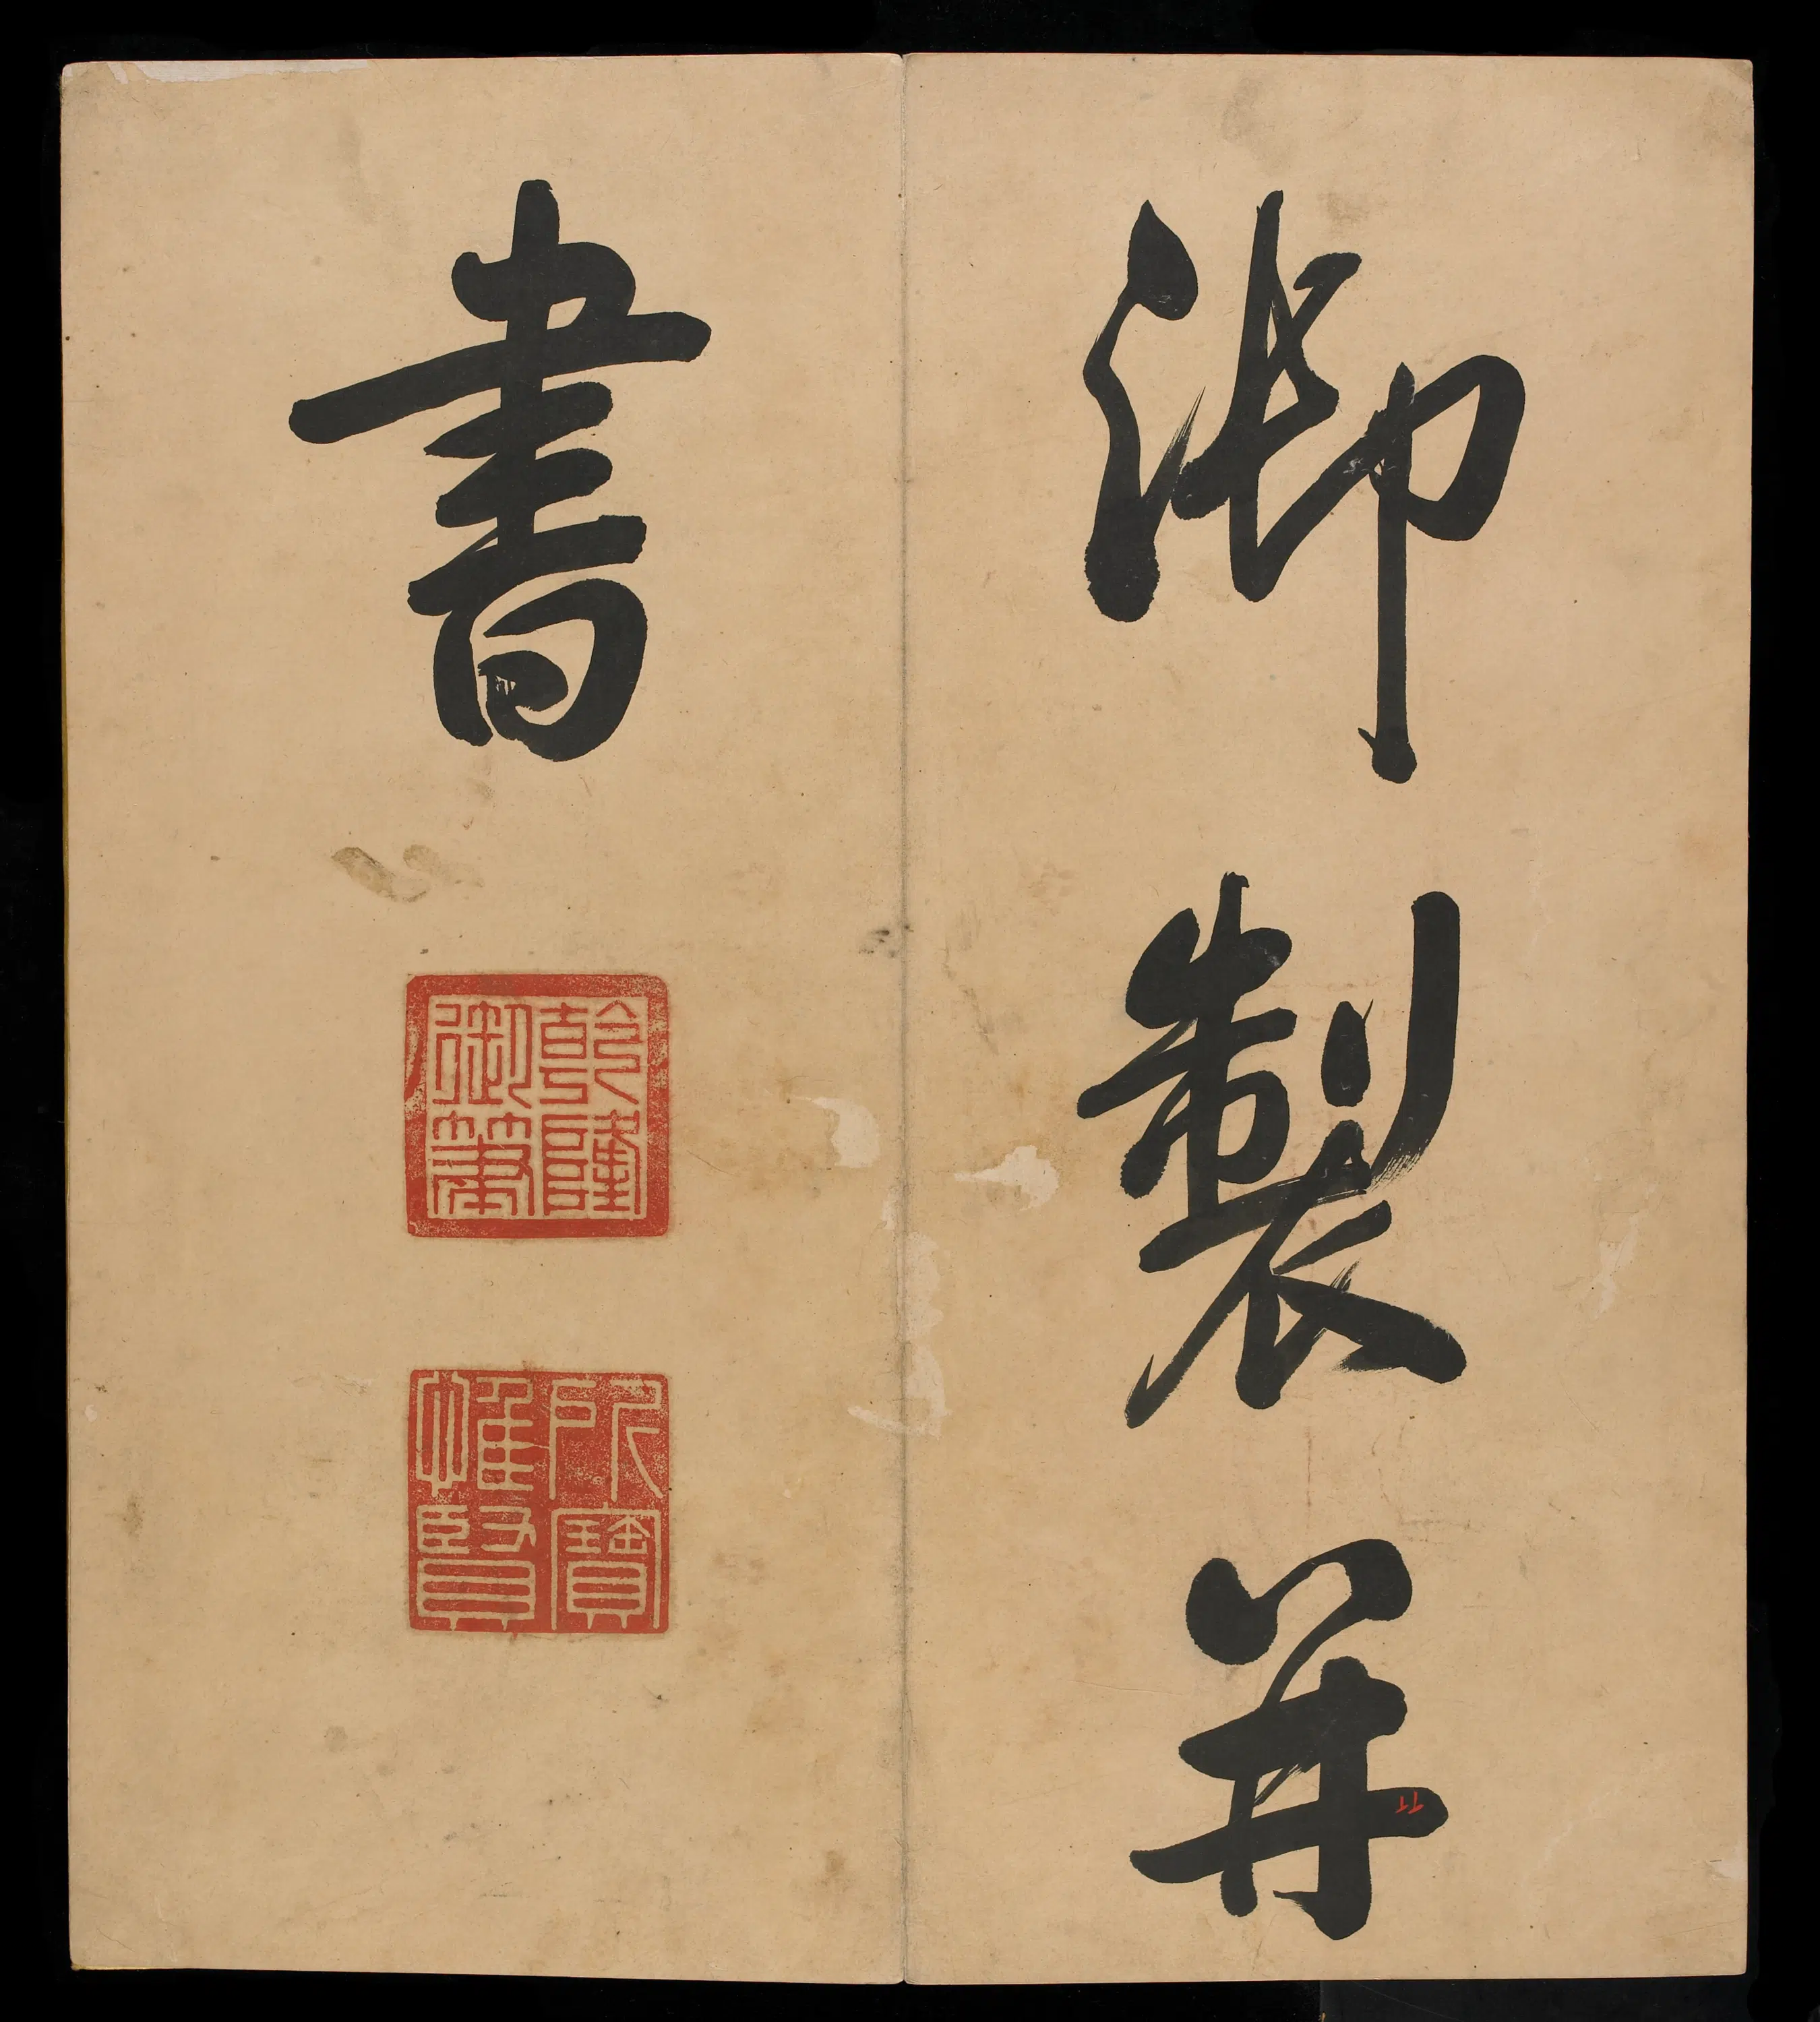 御製并
書
乾隆
御筆
所寶
惟賢